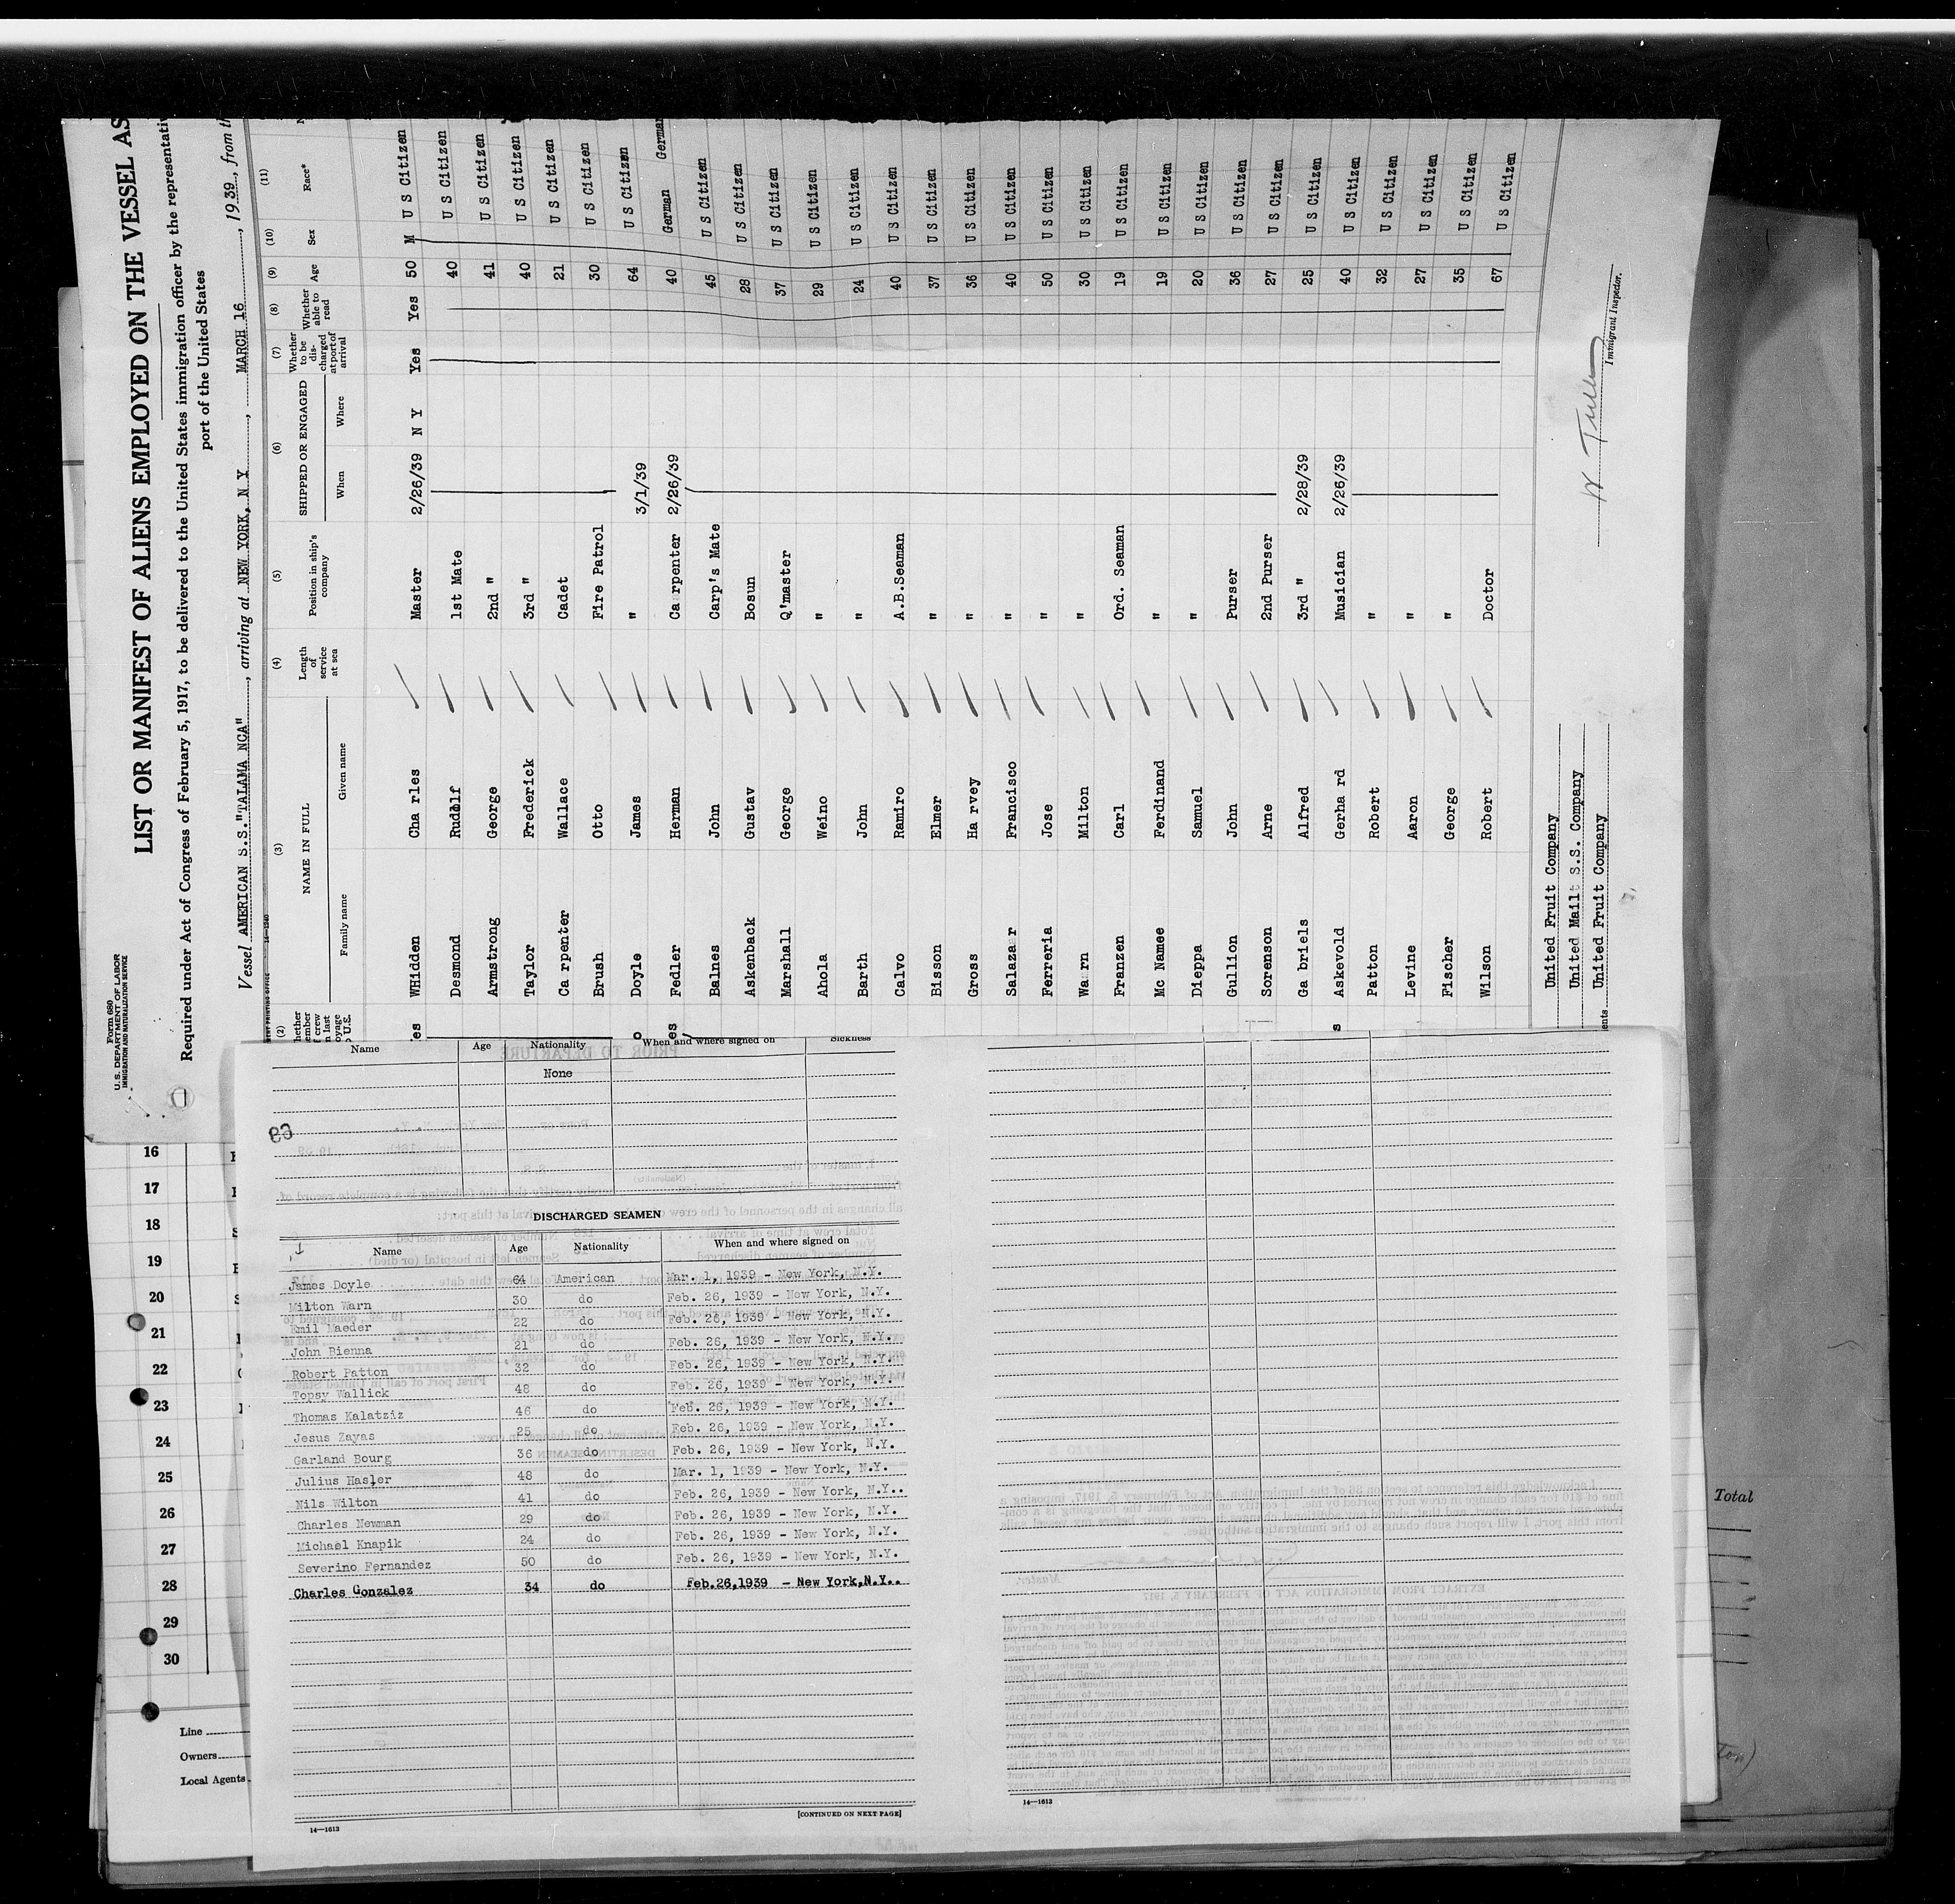 Form 680
U. S. DEPARTMENT OF LABOR
IMMIGRATION AND NATURALIZATION SERVICE
LIST OR MANIFEST OF ALIENS EMPLOYED ON THE VESSEL AS
Required under Act of Congress of February 5, 1917, to be delivered to the United States immigration officer by the representativ
port of the United States
Vessel AMERICAN S.S."TALAMA NCA", arriving at NEW YORK, N Y, MARCH 16, 1939, from th
(2) (3) (4) (5) (6) (7) (8) (9) (10) (11)
NAME IN FULL
Family name Given name
Length of service at sea
Position in ship's company
SHIPPED OR ENGAGED
When Where
Whether to be discharged at port of arrival
Whether able to read
Age Sex Race*
WHidden Cha rles Master 2/26/39 N Y Yes Yes 50 M U S Citizen
Desmond Rudolf 1st Mate 40 U S Citizen
Armstrong George 2nd " 41 U S Citizen
Taylor Frederick 3rd " 40 U S Citizen
Ca rpenter Wallace Cadet 21 U S Citizen
Brush Otto Fire Patrol 30 U S Citizen
Doyle James " 3/1/39 64 U S Citizen
Fedler Herman Ca rpenter 2/26/39 40 German German
Balnes John Carp's Mate 45 U S Citizen
Askenback Gustav Bosun 28 U S Citizen
Marshall George Q'master 37 U S Citizen
Ahola Weino " 29 U S Citizen
Barth John " 24 U S Citizen
Calvo Ramiro A.B.Seaman 40 U S Citizen
Bisson Elmer " 37 U S Citizen
Gross Ha rvey " 36 U S Citizen
Salazar Francisco " 40 U S Citizen
Ferreria Jose " 50 U S Citizen
Wa rn Milton " 30 U S Citizen
Franzen Carl Ord. Seaman 19 U S Citizen
Mc Namee Ferdinand " 19 U S Citizen
Dieppa Samuel " 20 U S Citizen
Gullion John Purser 36 U S Citizen
Sorenson Arne 2nd Purser 27 U S Citizen
Ga briels Alfred 3rd " 2/28/39 25 U S Citizen
Askevold Gerha rd Musician 2/26/39 40 U S Citizen
Patton Robert " 32 U S Citizen
Levine Aaron " 27 U S Citizen
Fischer George " 35 U S Citizen
Wilson Robert Doctor 67 U S Citizen
United Fruit Company
United Mail S.S. Company
United Fruit Company
Immigrant Inspector.
Name Age Nationality When and where signed on Sickness
None
DISCHARGED SEAMEN
Name Age Nationality When and where signed on
James Doyle 64 American Mar. 1, 1939 - New York, N.Y.
Milton Warn 30 do Feb. 26, 1939 - New York, N.Y.
Emil Maeder 22 do Feb. 26, 1939 - New York, N.Y.
John Bienna 21 do Feb. 26, 1939 - New York, N.Y.
Robert Patton 32 do Feb. 26, 1939 - New York, N.Y.
Topsy Wallick 48 do Feb. 26, 1939 - New York, N.Y.
Thomas Kalatziz 46 do Feb. 26, 1939 - New York, N.Y.
Jesus Zayas 25 do Feb. 26, 1939 - New York, N.Y.
Garland Bourg 36 do Feb. 26, 1939 - New York, N.Y.
Julius Hasler 48 do Mar. 1, 1939 - New York, N.Y.
Nils Wilton 41 do Feb. 26, 1939 - New York, N.Y..
Charles Newman 29 do Feb. 26, 1939 - New York, N.Y.
Michael Knapik 24 do Feb. 26, 1939 - New York, N.Y.
Severino Fernandez 50 do Feb. 26, 1939 - New York, N.Y.
Charles Gonzalez 34 do Feb.26,1939 - New York,N.Y..
[CONTINUED ON NEXT PAGE]
14—1613
14—1613
16
17
18
19
20
21
22
23
24
25
26
27
28
29
30
Line
Owners
Local Agents
Total